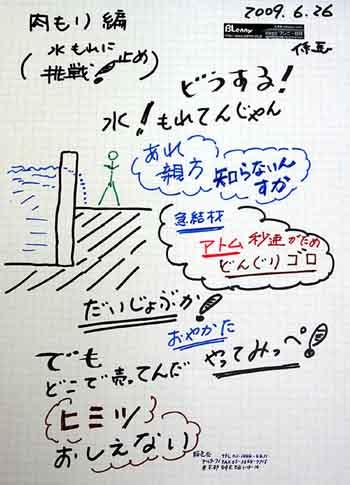 肉もり編
2009.6.26
BLenny
(水もれに
挑戦!止め)
どうする!
水!もれてんじゃん
あれ
親方
知らないん
すか
急結材
アトム秒速がため
どんぐりゴロ
だいじょぶか!
おやかた
やってみっぺ!
でも
どこで売ってんだ
ヒミツ
おしえない